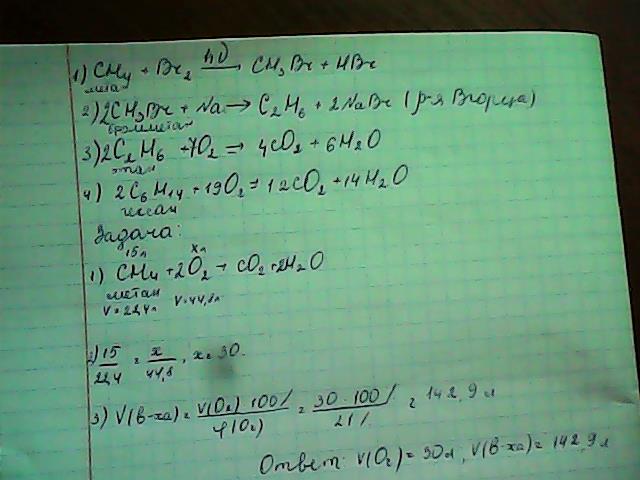 1) CH4 + Br2 hν→ CH3Br + HBr
метан
2) 2CH3Br + Na → C2H6 + 2NaBr (р-я Вюрца)
бромметан
3) 2C2H6 + 7O2 = 4CO2 + 6H2O
этан
4) 2C6H14 + 19O2 = 12CO2 + 14H2O
гексан
Задача:
15л xл
1) CH4 + 2O2 → CO2 + 2H2O
метан
V=22,4л V=44,8л
2) 15/22,4 = x/44,8, x = 30.
3) V(в-ха) = V(O2)·100%/φ(O2) = 30·100%/21% = 142,9л
Ответ: V(O2) = 30л, V(в-ха) = 142,9л